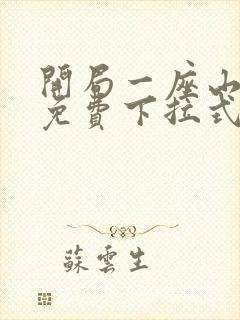 開局一座山
免費下拉式
蘇雲生